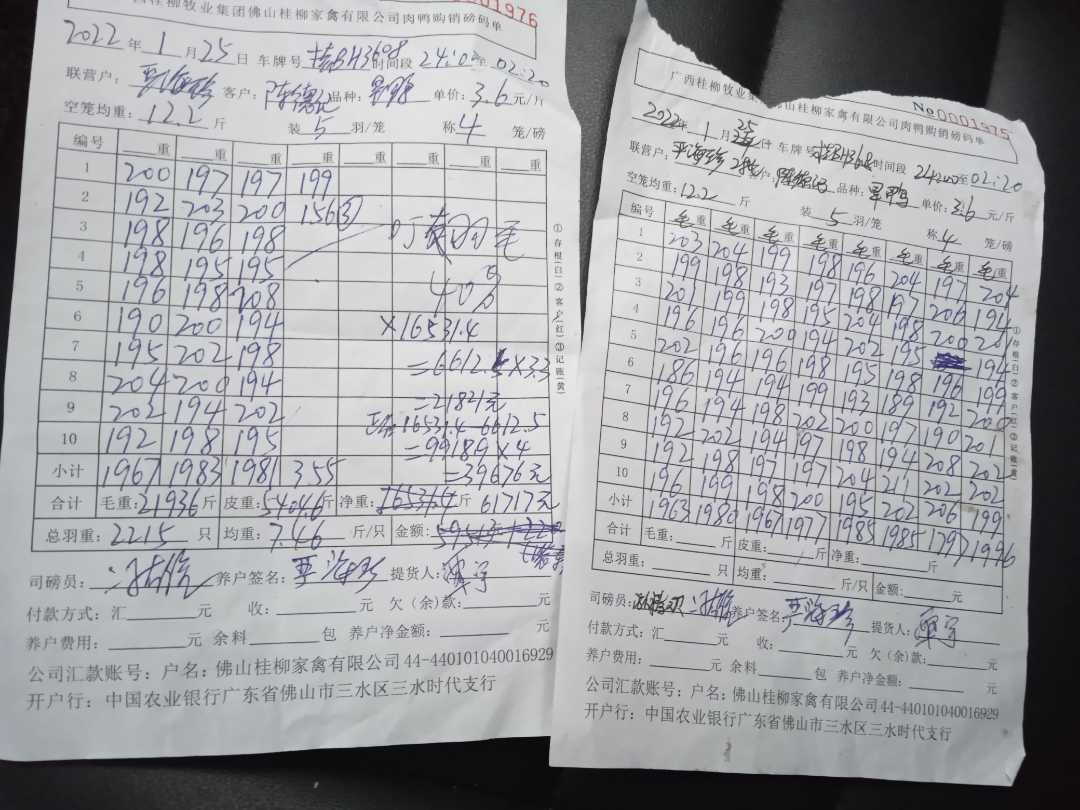 0001976
西桂柳牧业集团佛山桂柳家禽有限公司肉鸭购销磅码单
2022年1月25日 车牌号 桂BH3698 时间段 24:02至02:20
联营户: 严海珍 客户: 陈德记 品种: 单价: 3.6元/斤
空笼均重: 12.2斤 装5羽/笼 称4笼/磅
编号 重 重 重 重 重 重 重 重
1 200 197 197 199
2 192 203 200 156③
3 198 196 198
4 198 195 195
5 196 198 208
6 190 200 194
7 195 202 198
8 204 200 194
9 202 194 202
10 192 198 195
小计 1967 1983 1981 355
毛
40%
×16531.4
=6612.5×3.3
=21821元
16531.4-6612.5
=9918.9×4
=39676元
合计 毛重:21936斤 皮重:5404.6斤 净重:16531.4斤 61717元
总羽重:2215只 均重:7.46斤/只 金额:
司磅员: 养户签名:严海珍 提货人:
付款方式:汇 元 收: 元 欠(余)款: 元
养户费用: 元 余料 包 养户净金额: 元
公司汇款账号:户名:佛山桂柳家禽有限公司44-440101040016929
开户行:中国农业银行广东省佛山市三水区三水时代支行
①存根(白)②客户(红)③记账(黄)
№0001975
广西桂柳牧业集团佛山桂柳家禽有限公司肉鸭购销磅码单
2022年1月25日 车牌号 桂BH3698 时间段 24:00至02:20
联营户: 严海珍 客户: 陈德记 品种: 单价: 3.6元/斤
空笼均重: 12.2斤 装5羽/笼 称4笼/磅
编号 毛重 毛重 毛重 毛重 毛重 毛重 毛重 毛重
1 203 204 199 198 196 204 197 204
2 199 198 193 197 198 197 206 194
3 201 199 198 195 204 198 200 201
4 196 196 200 194 202 195 194
5 202 196 196 198 195 198 196 199
6 186 194 194 199 193 189 192 200
7 196 194 198 202 200 197 190 201
8 192 202 194 197 198 194 208 202
9 192 198 197 197 204 211 202 202
10 196 199 198 200 195 202 206 199
小计 1963 1980 1967 1977 1985 1985 1797 1996
合计 毛重: 斤 皮重: 斤 净重: 斤
总羽重: 只 均重: 斤/只 金额: 元
司磅员: 养户签名:严海珍 提货人:
付款方式:汇 元 收: 元 欠(余)款: 元
养户费用: 元 余料 包 养户净金额: 元
公司汇款账号:户名:佛山桂柳家禽有限公司44-440101040016929
开户行:中国农业银行广东省佛山市三水区三水时代支行
①存根(白)②客户(红)③记账(黄)